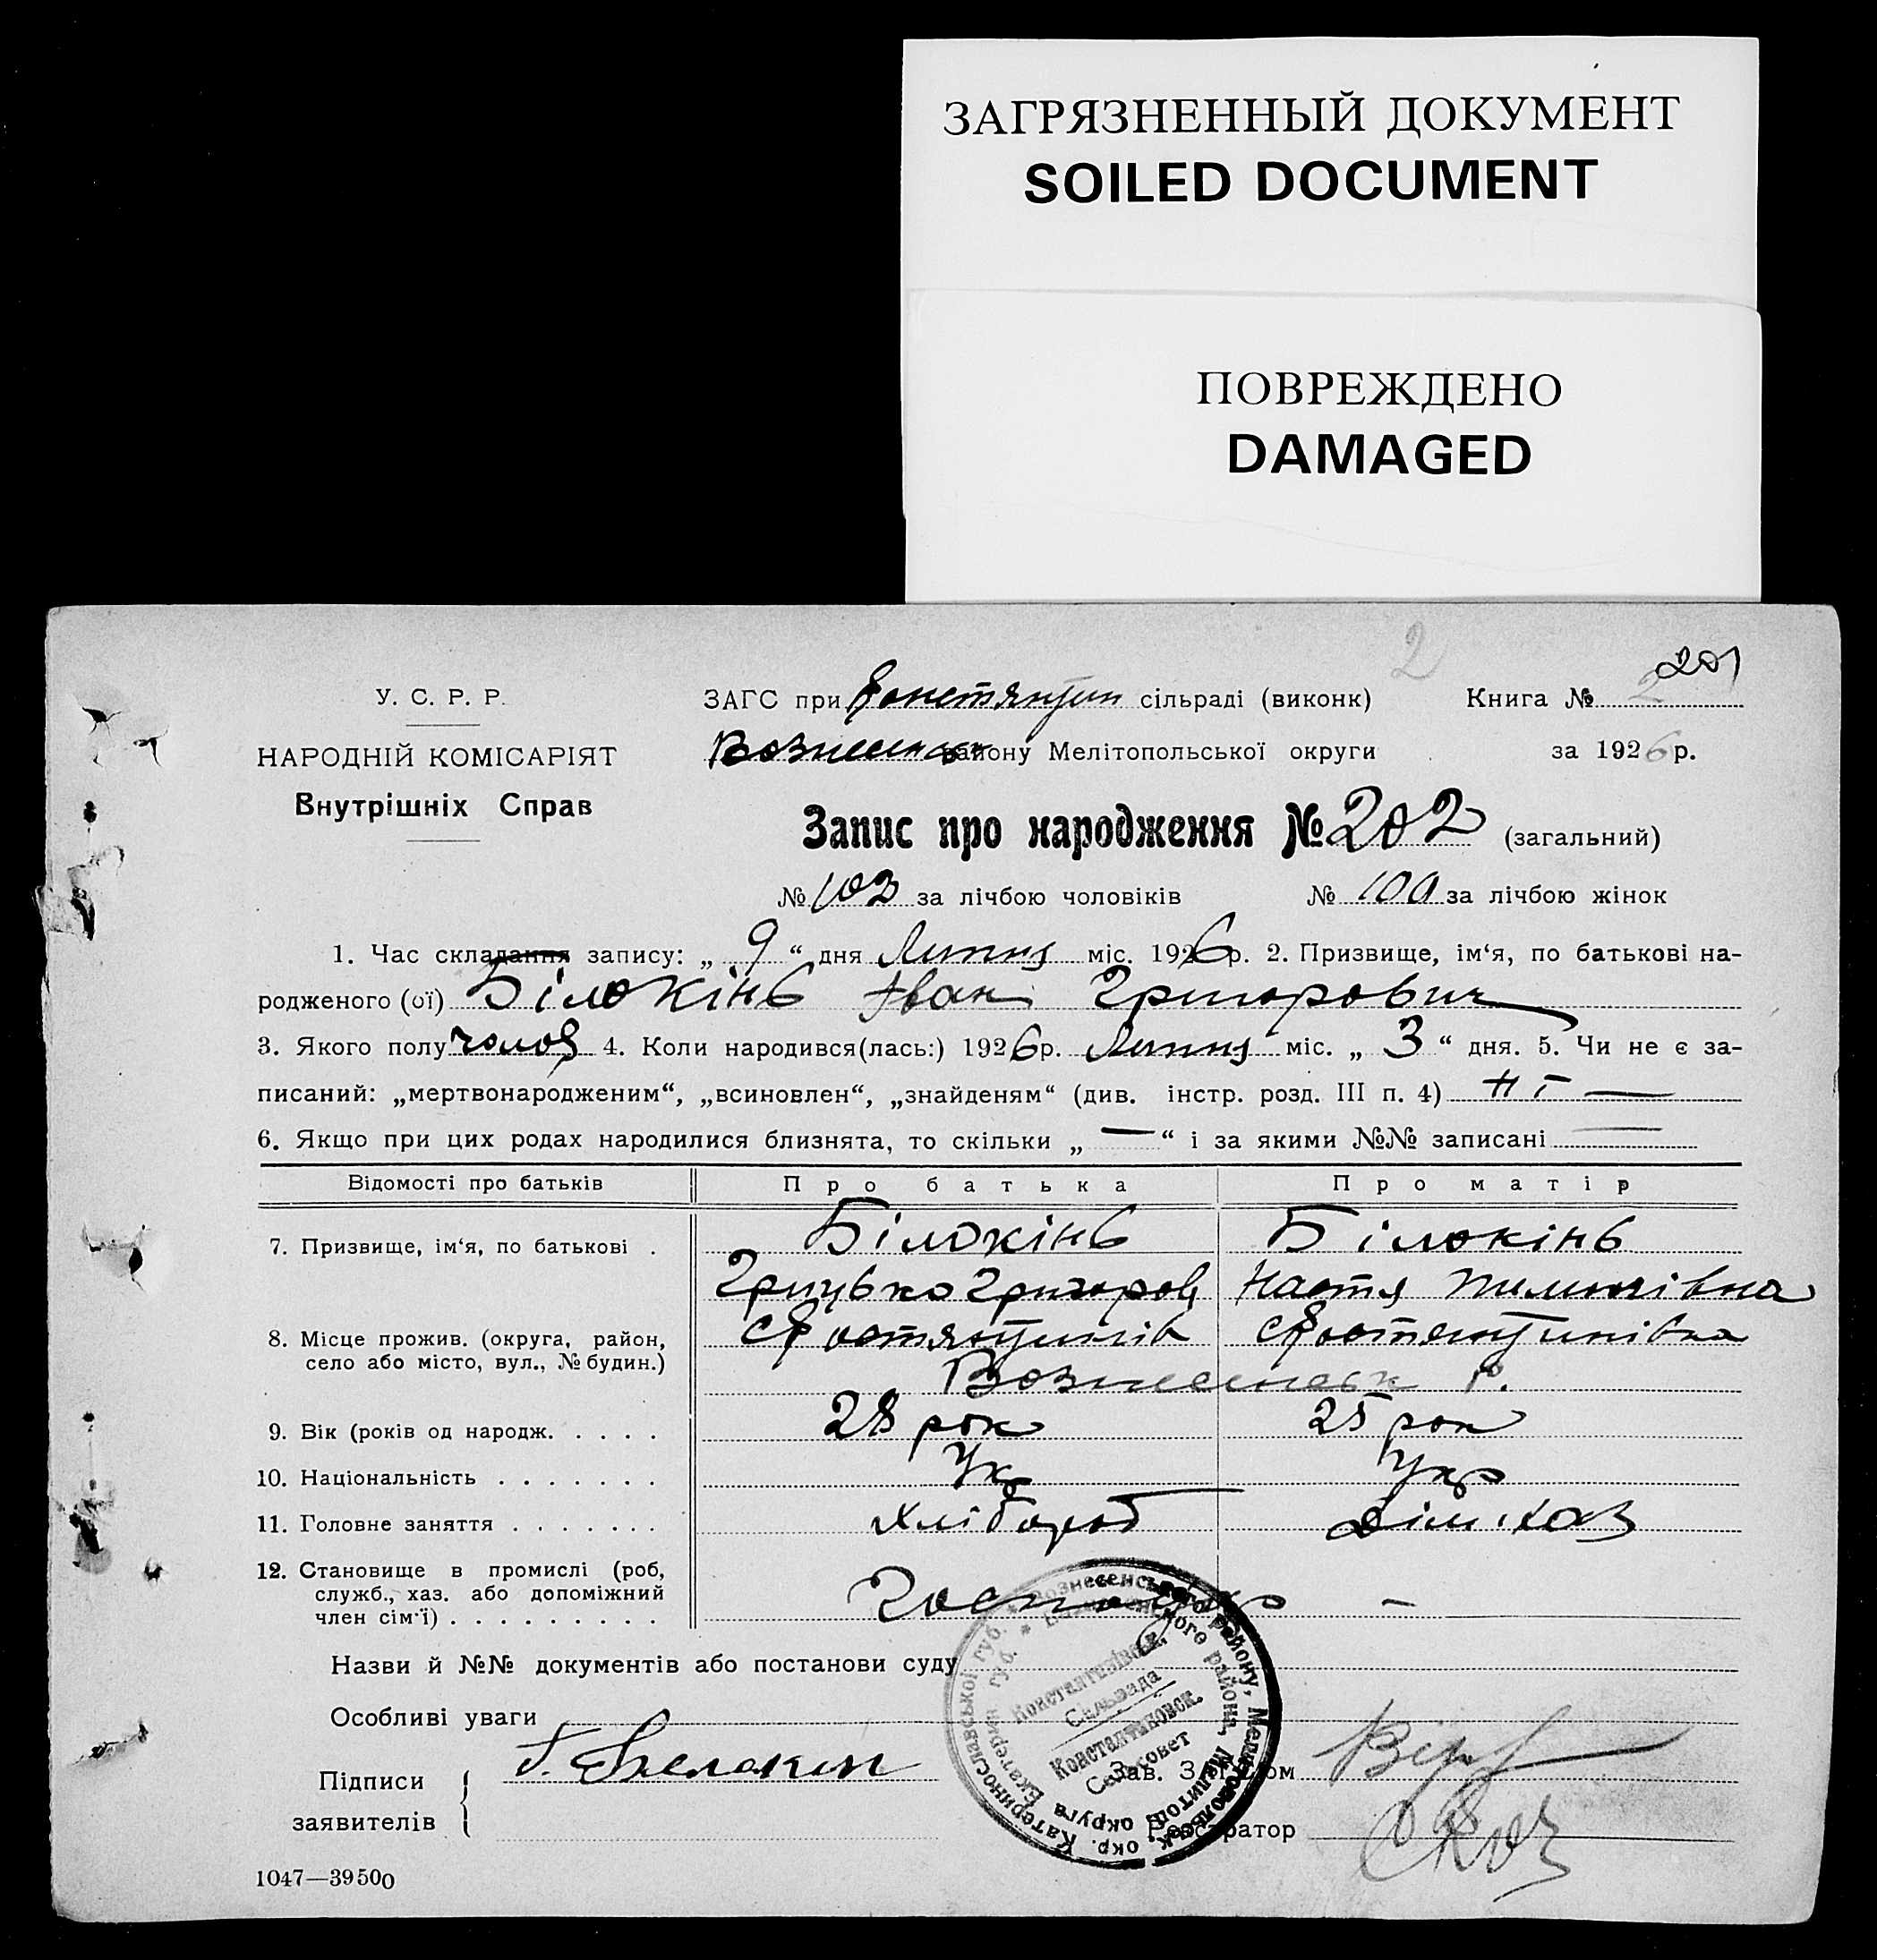 ЗАГРЯЗНЕННЫЙ ДОКУМЕНТ
SOILED DOCUMENT
ПОВРЕЖДЕНО
DAMAGED
2
201
У. С. Р. Р.
ЗАГС при Констянтин сільраді (виконк) Книга № 2
НАРОДНІЙ КОМІСАРІЯТ
Вознесенськ району Мелітопольської округи за 1926 р.
Внутрішніх Справ
Запис про народження № 202 (загальний)
№ 103 за лічбою чоловіків № 100 за лічбою жінок
1. Час складання запису: „ 9 “ дня Липня міс. 1926 р. 2. Призвище, ім‘я, по батькові на-
родженого (ої) Білокінь Іван Григорович
3. Якого полу 4. Коли народився(лась:) 1926 р. Липня міс. „ 3 “ дня. 5. Чи не є за-
писаний: „мертвонародженим“, „всиновлен“, „знайденям“ (див. інстр. розд. III п. 4) Ні —
6. Якщо при цих родах народилися близнята, то скільки „ — “ і за якими №№ записані —
Відомості про батьків Про батька Про матір
7. Призвище, ім‘я, по батькові . Білокінь Білокінь
Грицько Григоров Настя
8. Місце прожив. (округа, район,
село або місто, вул., № будин.)
Вознесенськ р.
9. Вік (років од народж. . . . . 28 рок 25 рок
10. Національність . . . . . . . Ук Укр
11. Головне заняття . . . . . . . Хлібороб Дім. хаз
12. Становище в промислі (роб,
служб., хаз. або допоміжний
член сім‘ї) . . . . . . . . . Господар —
Назви й №№ документів або постанови суду
Особливі уваги
Підписи
заявителів
Г. Белокинь
Зав. ЗАГС‘ом
Реєстратор
Вознесенського району, Мелітопольськ. окр. Катеринославської губ.
Константинівск. Сільрада
Константиновск. Сельсовет
1047—39500